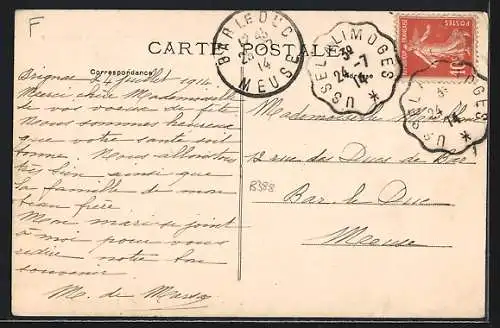 F
CARTE POSTALE
Correspondance
BAR LE DUC
MEUSE
14
USSEL À LIMOGES
24 -7
14
POSTES
10
USSEL
OGES
24
14
4 juillet 1914
Merci chère Mademoiselle
de vos voeux de fête
Nous sommes heureux
que votre santé soit
bonne. Nous allons tous
très bien ainsi que
la famille de mon
beau frère.
Mon mari se joint
à moi pour vous
redire notre bon
souvenir
M. de
Mademoiselle
12 rue des Ducs de Bar
B388
Bar le Duc
Meuse